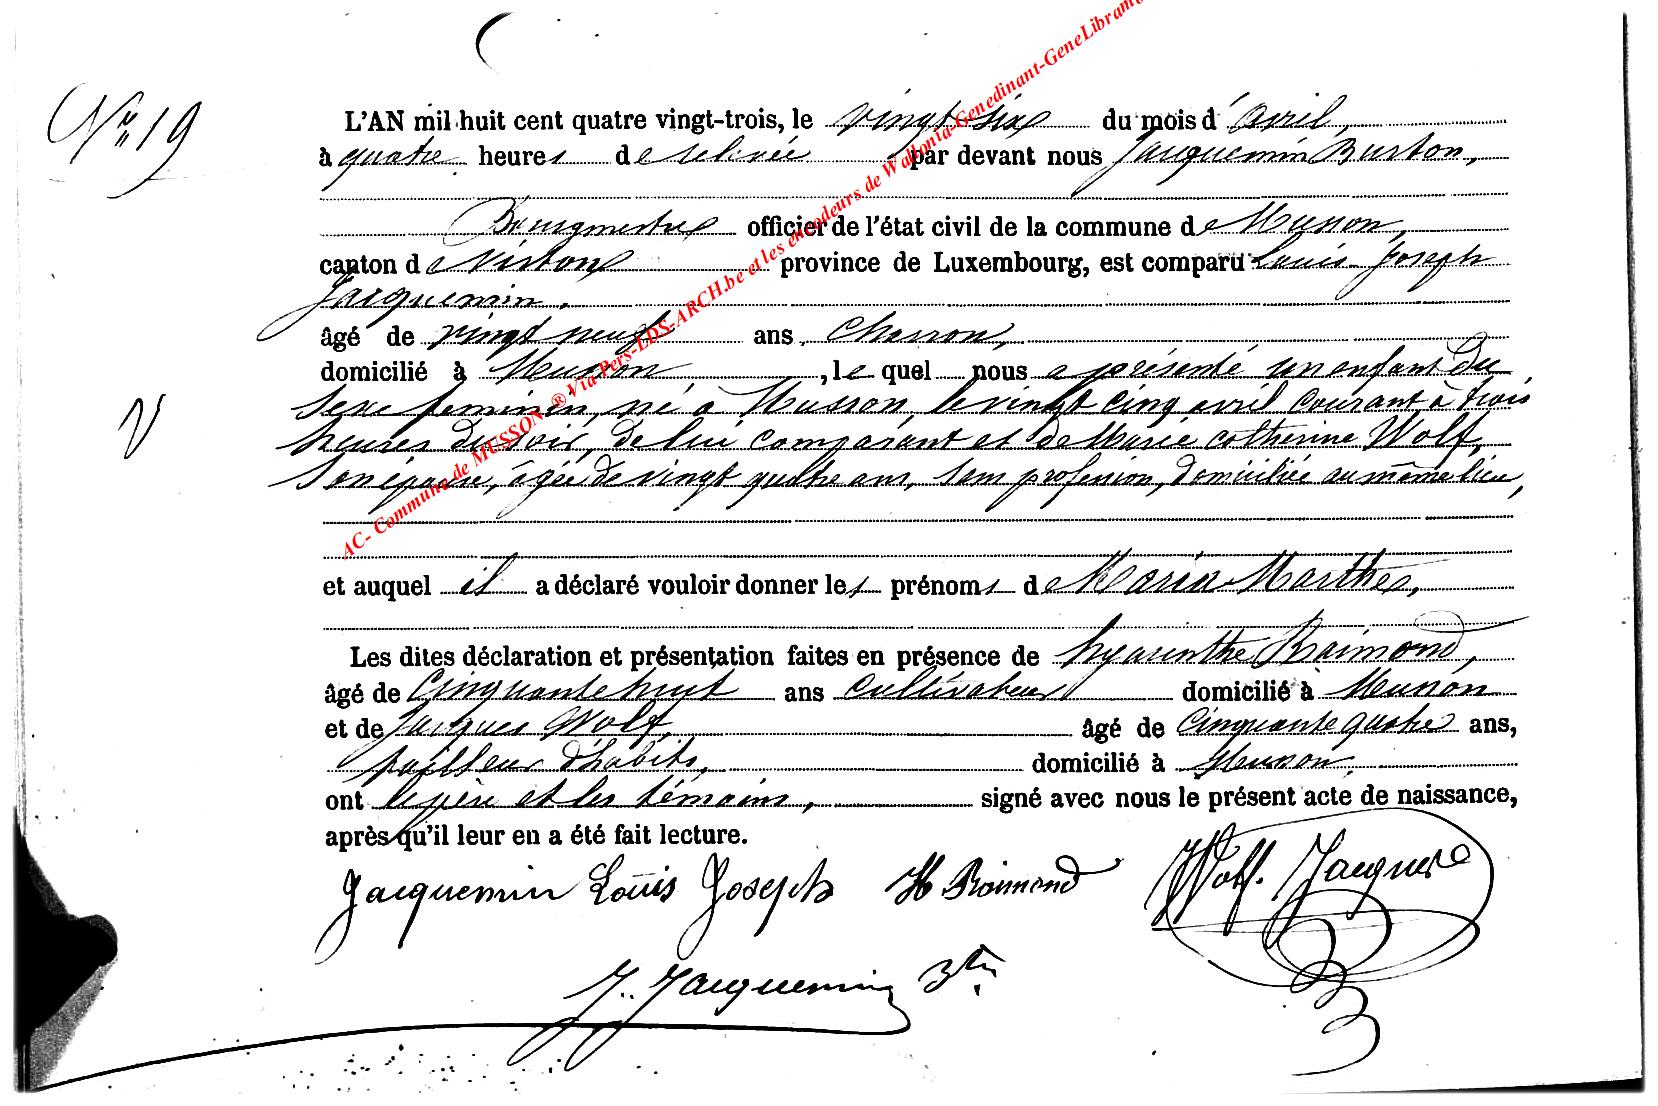 Nº 19
L'AN mil huit cent quatre vingt-trois, le vingt six du mois d'avril,
à quatre heures de relevée par devant nous Jacquemin Burton,
Bourgmestre officier de l'état civil de la commune de Musson,
canton de Virton province de Luxembourg, est comparu Louis Joseph
Jacquemin,
âgé de vingt neuf ans, charron,
domicilié à Musson, le quel nous a présenté un enfant du
V
sexe féminin, né à Musson, le vingt cinq avril courant à trois
heures du soir, de lui comparant et de Marie Catherine Wolf,
son épouse, âgée de vingt quatre ans, sans profession, domiciliée au même lieu,
et auquel il a déclaré vouloir donner les prénoms de Maria Marthe,
Les dites déclaration et présentation faites en présence de hyacinthe Raimond,
âgé de Cinquante huit ans cultivateur domicilié à Musson
et de Jacques Wolf, âgé de cinquante quatre ans,
tailleur d'habits, domicilié à Musson,
ont le père et les témoins, signé avec nous le présent acte de naissance,
après qu'il leur en a été fait lecture.
Jacquemin Louis Joseph H Raimond Wolf. Jacques
J.. Jacquemin Btn
AC- Commune de MUSSON ® Via Pers-LDS-ARCH.be et les encodeurs de Wallonia-Genedinant-GeneLibramo